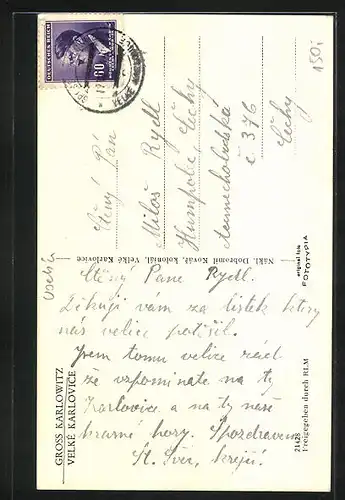 DEUTSCHES REICH
60
VELKÉ KARLOVICE
150,-
Ctěný Pán
Miloš Rydl
Humpolec, Čechy
č 376
Čechy
Nákl. Dobromil Kovář, koloniál, Velké Karlovice
original foto
FOTOTYPIA
Ctěný Pane Rydl.
Děkuji vám za lístek který
nás velice potěšil.
Jsem tomu velice rád
že vzpomínáte na ty
Karlovice a na ty naše
krásné hory. Spozdravem
krejčí.
GROSS KARLOWITZ
VELKÉ KARLOVICE
21428
Freigegeben durch RLM